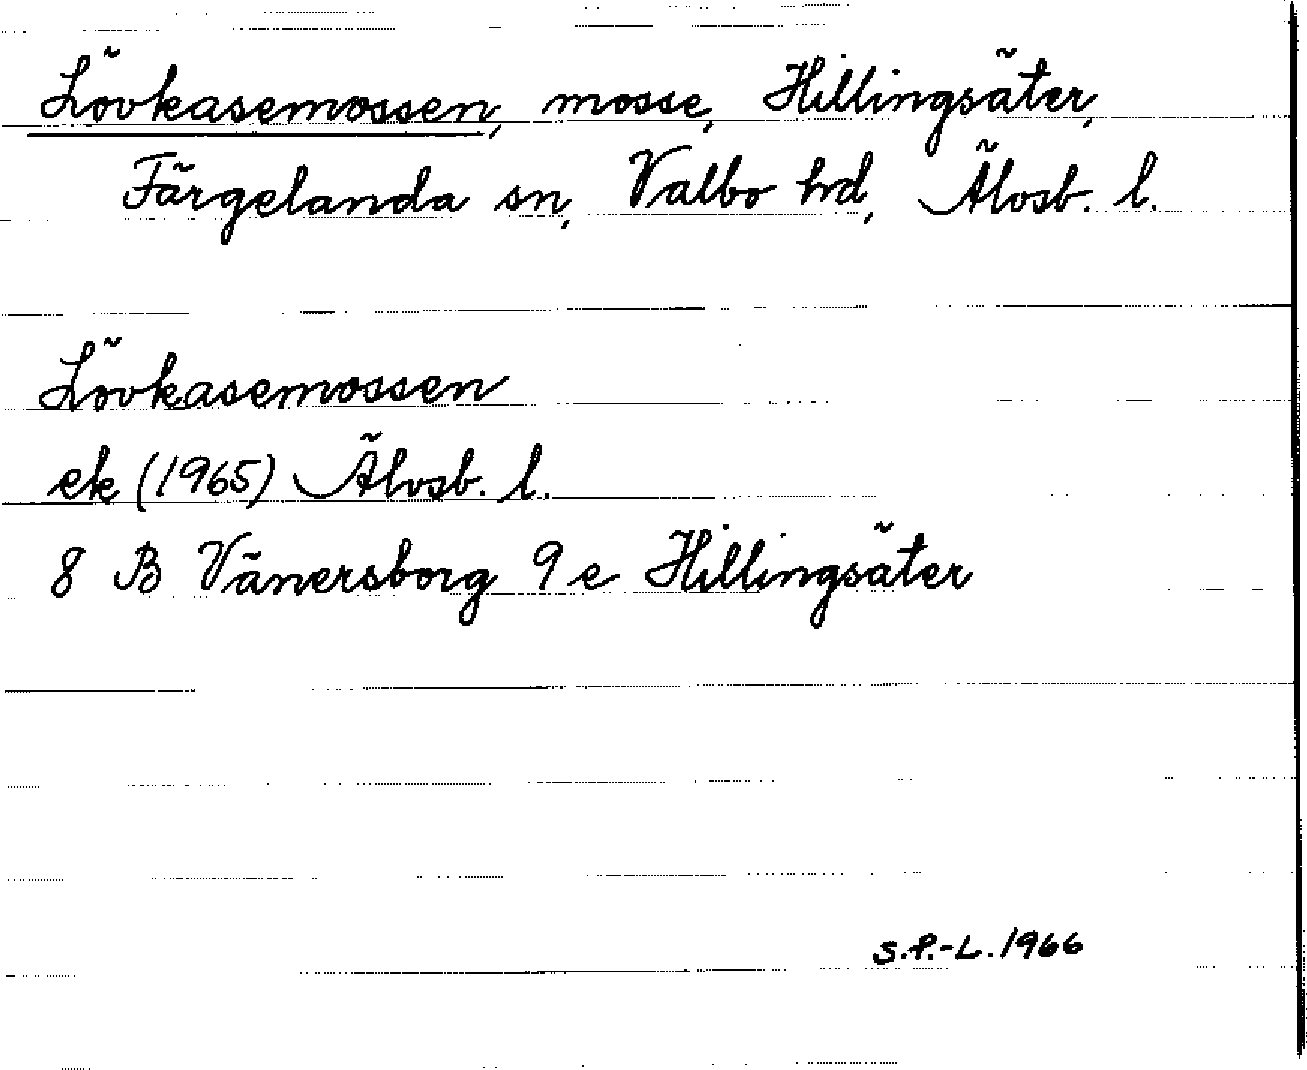 Lövkasemossen, mosse, Hillingsäter,
Färgelanda sn, Valbo hd, Älvsb. l.
Lövkasemossen
ek (1965) Älvsb. l.
8 B Vänersborg 9 e Hillingsäter
S.P.-L. 1966